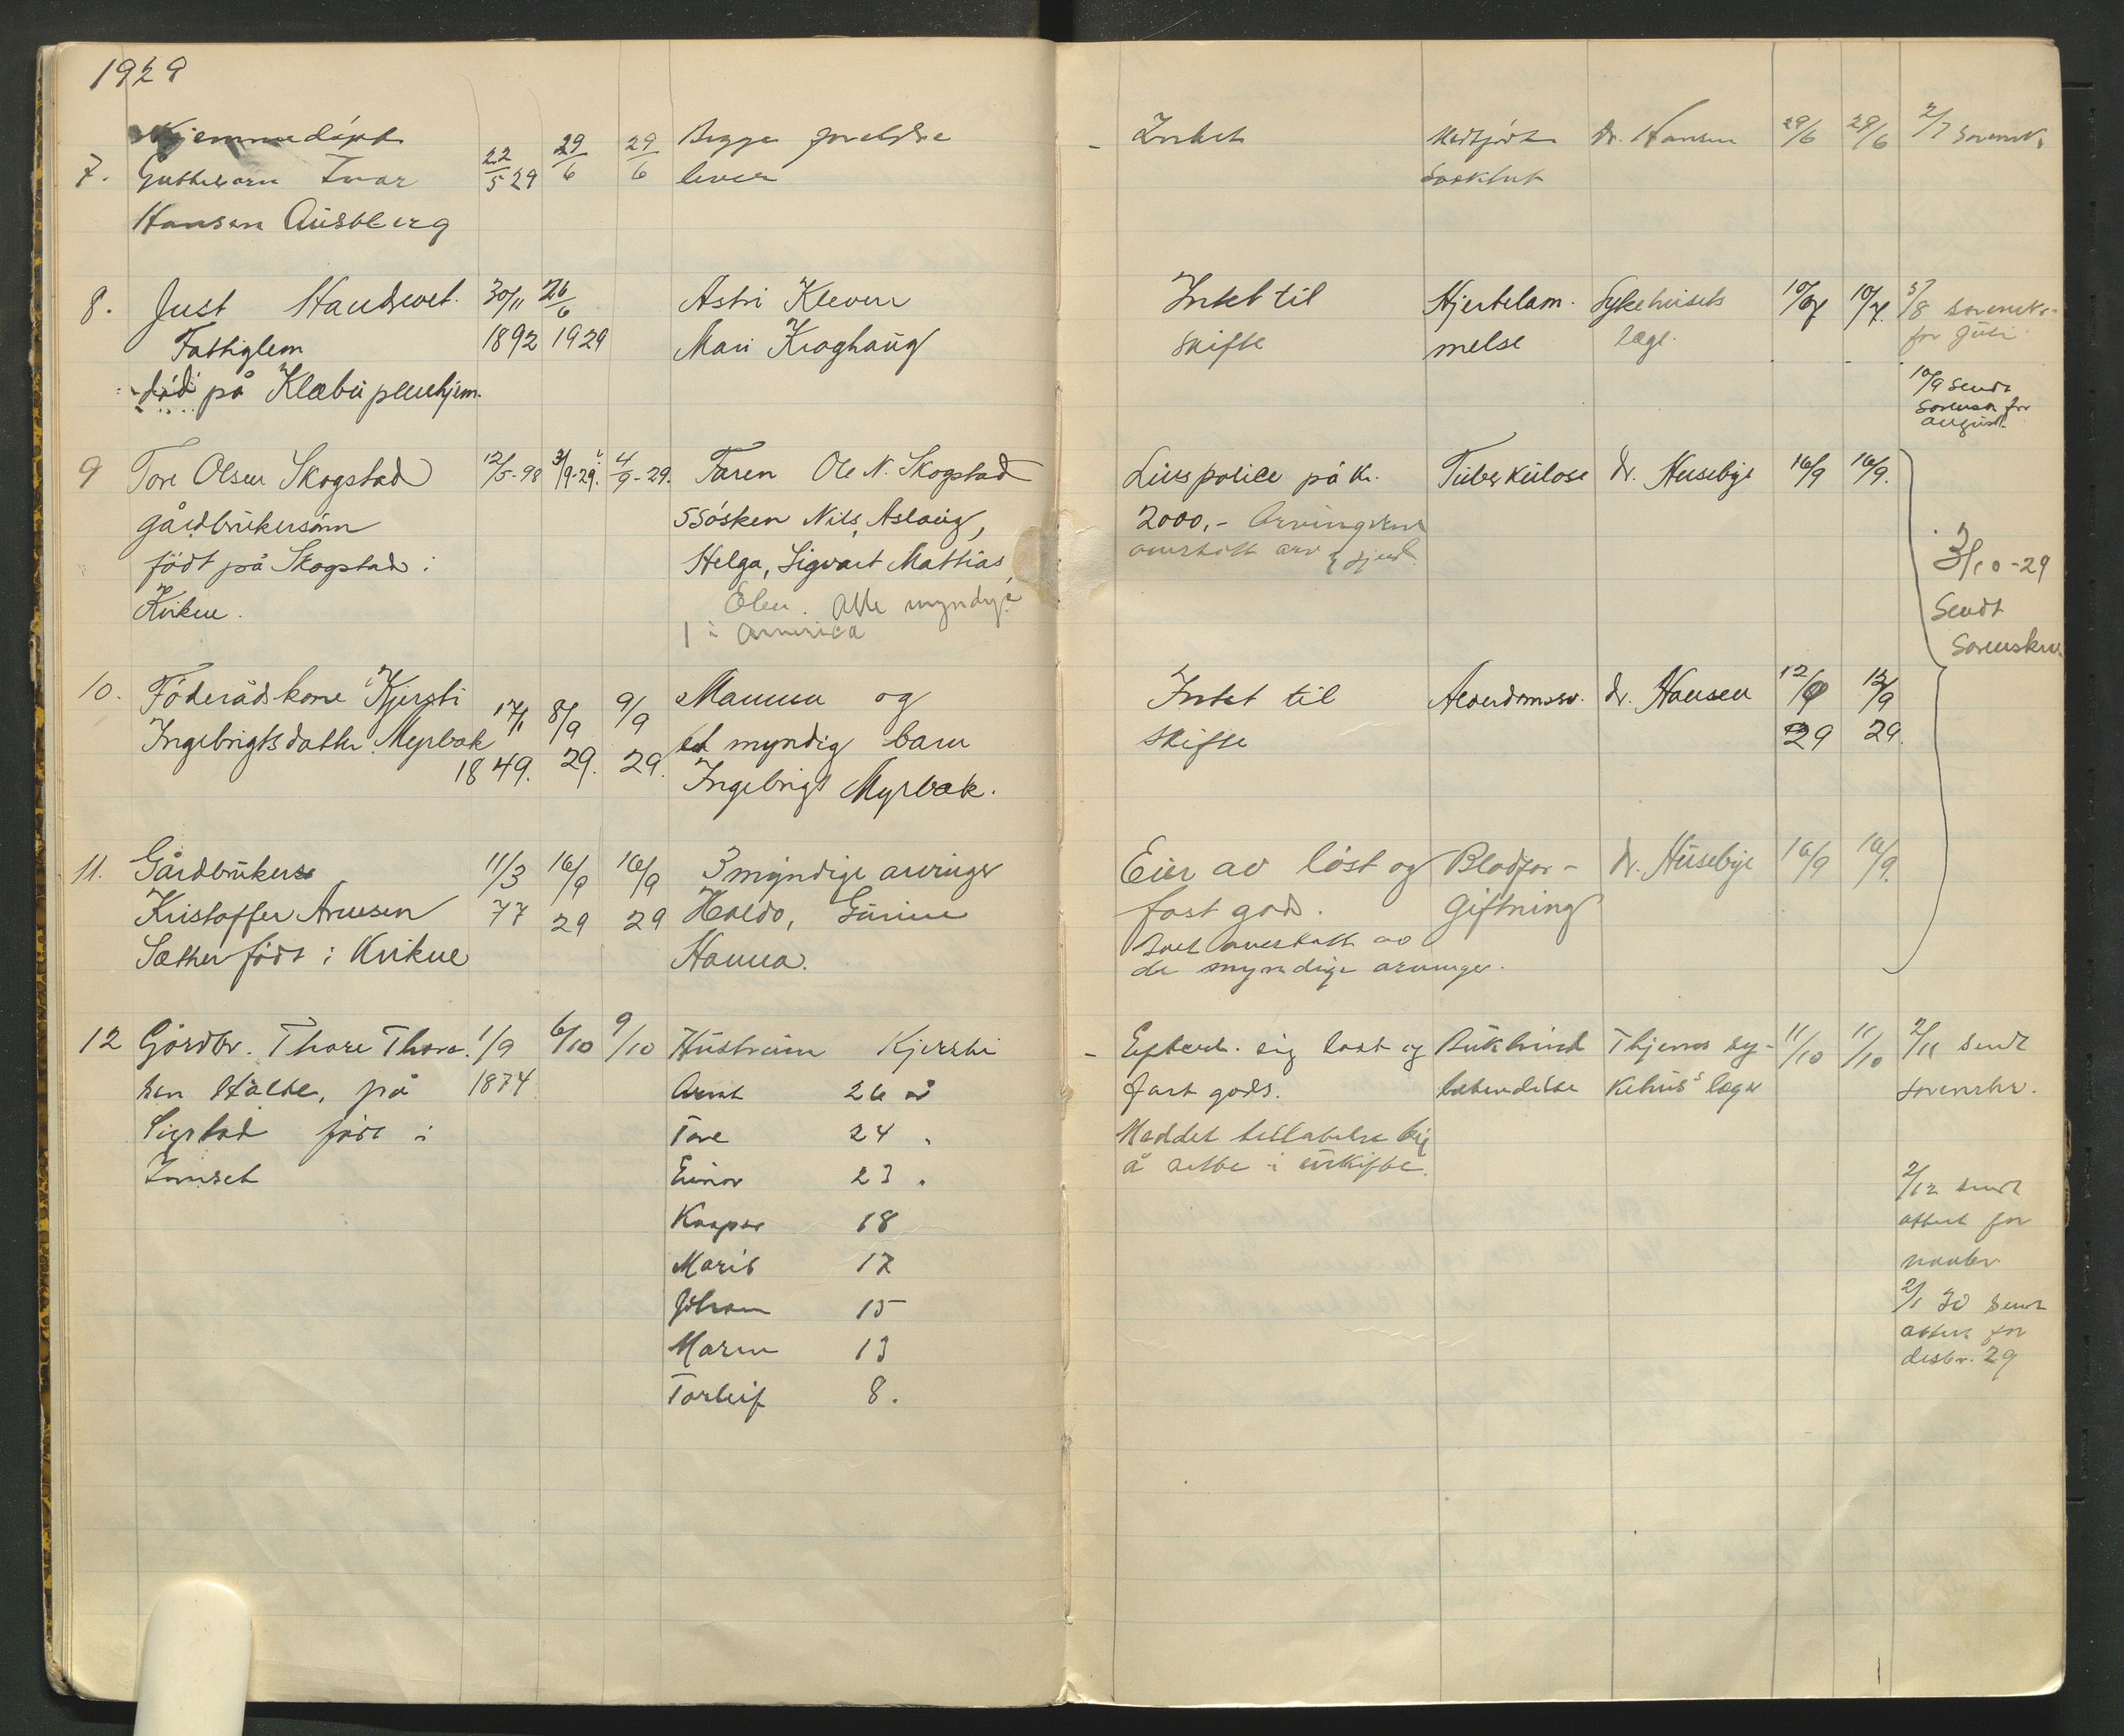 1929
Hjemmedøpt
7. Guttebarn Ivar
Hansen Ausberg
22/5 29
29/6
29/6
Begge foreldre
lever
- Intet
Medfødt
Dr. Hansen
29/6
29/6
2/7 sorensk.
8. Just
Fattiglem
død på Klæbu pleiehjem.
30/11 1892
26/6 1929
Astri Kleven
Mari Kroghaug
Intet til
skifte
Hjertelam-
melse
Sykehusets
læge.
10/7
10/7.
5/8 sorenskr.
for Juli
10/9 sendt
Sorensk for
August
9 Tore Olsen Skogstad
gårdbrukersønn
født på Skogstad i
Kvikne.
12/5-98
3/9-29.
4/9-29.
Faren Ole N. Skogstad
5 søsken Nils, Aslaug,
Helga, Sigvart Mattias,
Elen. Alle myndige
1 i America
Livspolice på kr.
2000,- Arvingerne
overtatt arv & gjeld.
Tuberkulose
dr. Husebye
16/9
16/9.
3/10-29
Sendt
Sorenskr.
10. Føderådskone Kjersti
Ingebrigtsdatter Myrbak
17/1 1849.
8/9 29.
9/9 29.
Mannen og
et myndig barn
Ingebrigt Myrbak.
Intet til
skifte
Alderdomssv.
dr. Hansen
12/9 29
12/9 29.
11. Gårdbruker
Kristoffer Arnesen
Sæther født i Kvikne
11/3 77
16/9 29
16/9 29
3 myndige arvinger
Haldo, Gurine
Hanna.
Eier av løst og
fast gods.
Boet overtatt av
de myndige arvinger.
Blodfor-
giftning
dr. Husebye
16/9
16/9.
12 Gårdbr. Thore Thore-
sen Stølte, på
Sigstad født i
Innset
1/9 1874
6/10
9/10
Hustruen Kjersti
Arnt 26 år
Tore 24 "
Einar 23 "
Kasper 18
Marit 17
Johan 15
Maren 13
Torleif 8.
- Efterl. sig løst og
fast gods.
Meddelt tillatelse til
å sitte i uskifte.
Bukhinde
betendelse
Thjems sy-
kehus's læger
11/10
11/10
2/11 sendt
sorenskr.
2/12 sendt
attest for
novbr
2/1 30 sendt
attest for
desbr. 29